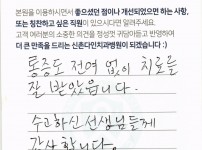 본원을 이용하시면서 좋으셨던 점이나 개선되었으면 하는 사항,
또는 칭찬하고 싶은 직원이 있으시다면 알려주세요.
고객 여러분의 소중한 의견을 정성껏 귀담아듣고 반영하여
더 큰 만족을 드리는 신촌다인치과병원이 되겠습니다 :)
통증도 전혀 없이 치료를
잘 받았습니다.
수고하신 선생님들께
감사합니다.